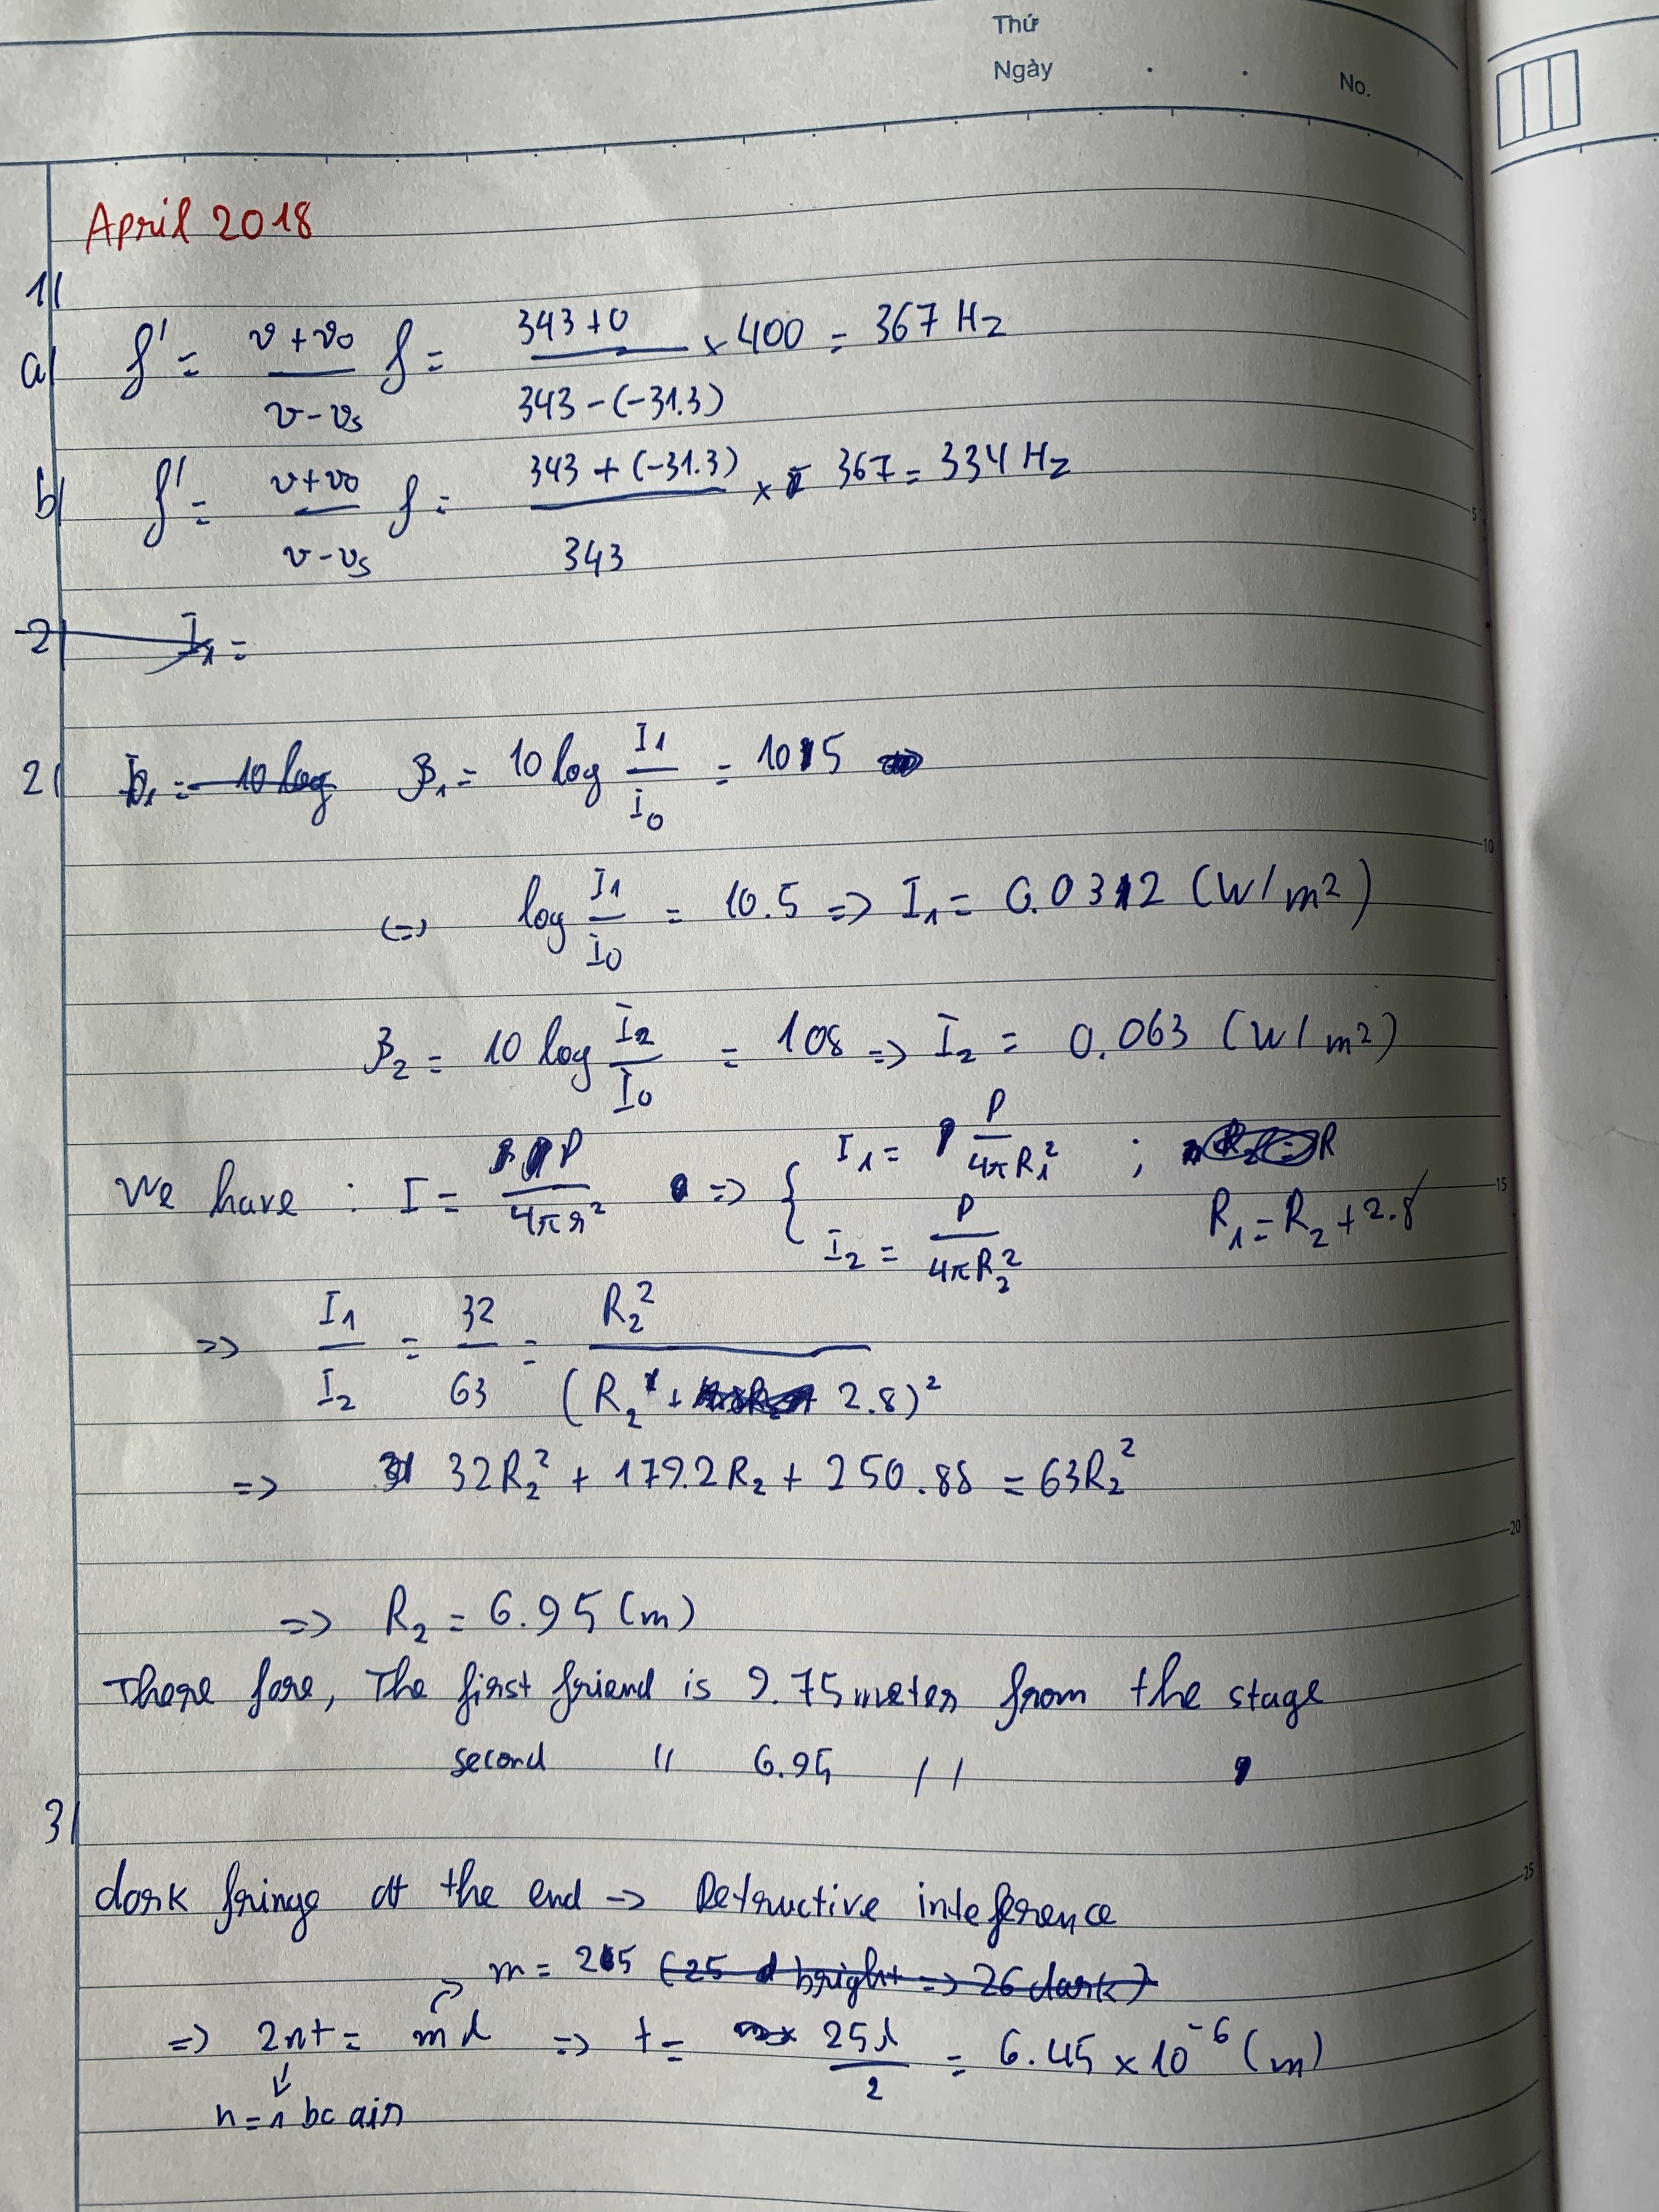 Thứ
Ngày . . No.
April 2018
1/
a/ f' = (v + v₀)/(v - vₛ) f = (343 + 0)/(343 - (-31.3)) × 400 = 367 Hz
b/ f' = (v + v₀)/(v - vₛ) f = (343 + (-31.3))/343 × 367 = 334 Hz
2/ I₁ =
2/ I₁ = 10 log β₁ = 10 log I₁/I₀ = 105
<=> log I₁/I₀ = 10.5 => I₁ = 0.032 (W/m²)
β₂ = 10 log I₂/I₀ = 108 => I₂ = 0.063 (W/m²)
We have : I = P/4πr² => { I₁ = P/4πR₁² ; R
I₂ = P/4πR₂² R₁ = R₂ + 2.8
=> I₁/I₂ = 32/63 = R₂²/(R₂ + 2.8)²
=> 32R₂² + 179.2R₂ + 250.88 = 63R₂²
=> R₂ = 6.95 (m)
There fore, The first friend is 9.75 meter from the stage
second " 6.95 //
3/
dark fringe at the end -> Detructive inteference
m = 25 (25 d bright => 26 dark)
=> 2nt = mλ => t = 25λ/2 = 6.45 × 10⁻⁶ (m)
n = 1 bc air
5
10
15
20
25